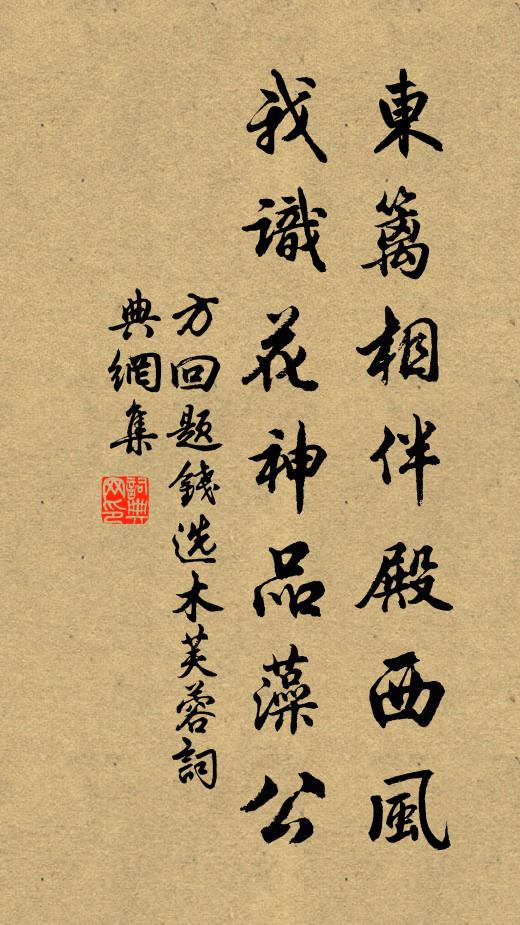 東籬相伴殿西風
我識花神品藻公
方回題錢选木芙蓉詞
典網集
詞典網印